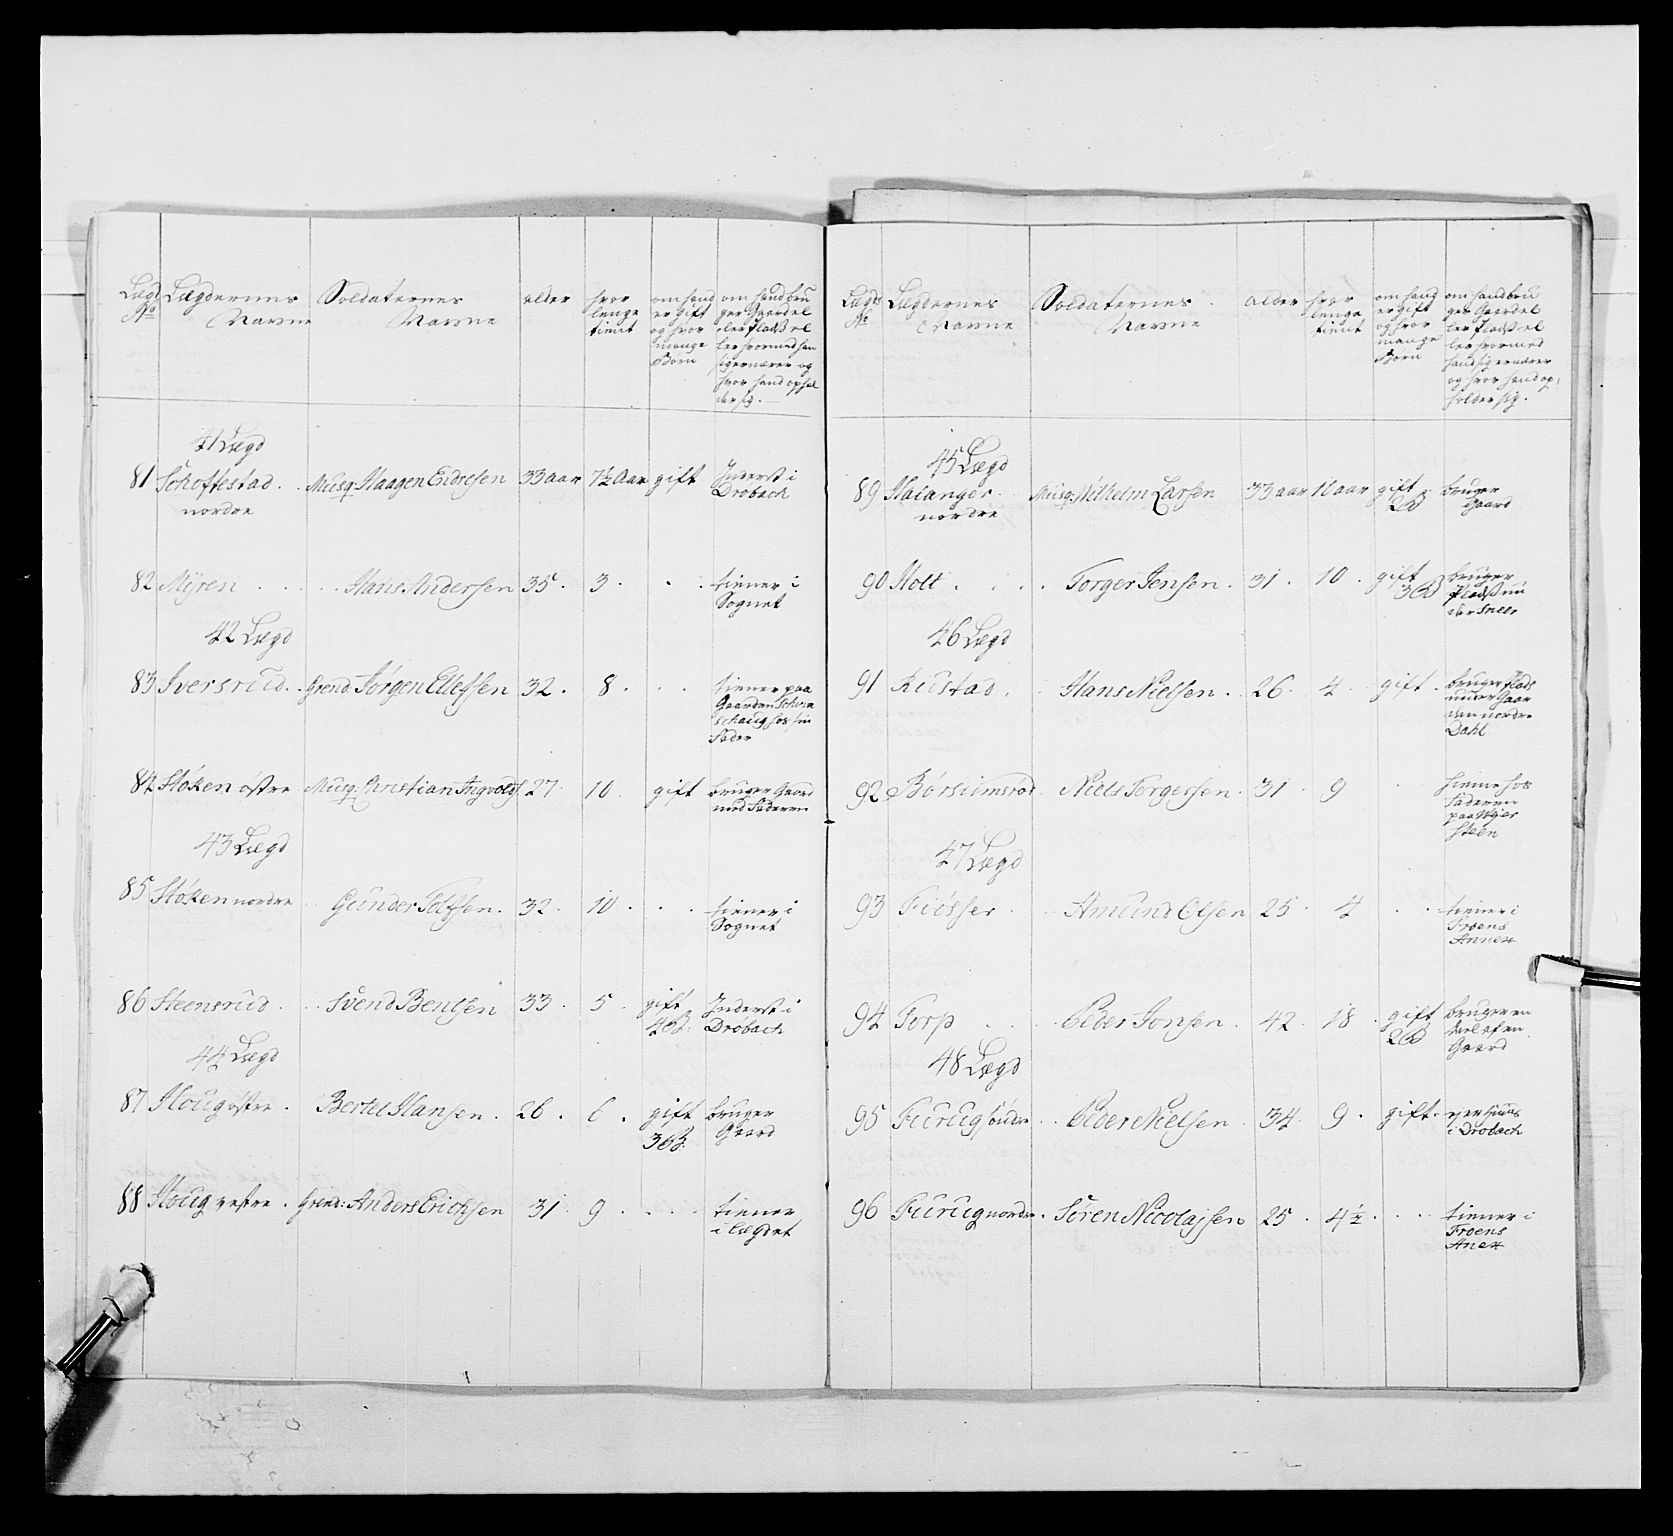 Lægd No
Lægdernes Navne
Soldaternes Navne
alder
hvor lenge tient
om hand er gift og hvor mange Børn
om hand bruger Gaard eller Plads eller hvormed han sig ernærer og hvor hand opholder sig.
41 Lægd
81 Schoftestad nordre Musq: Haagen Endresen 33 aar 7½ Aar gift Inderst i Drøbach
82 Myren Hans Andersen 35. 3. tiener i Sognet
42 Lægd
83 Iversrud Grend: Jørgen Ellefsen 32. 8. tiener paa Gaarden hos sin Fader
84 Støken østre Musq: Christian Ingvolds 27. 10. gift bruger Gaard med Faderen
43 Lægd
85 Støken nordre Gunder 32. 10. tiener i Sognet
86 Steensrud Svend Bentsen 33. 5. gift 4 B. Inderst i Drøbach
44 Lægd
87 Houg østre. Bertel Hansen. 26. 6. gift 3 B. bruger Gaard
88 Houg vestre. Grend: Anders Erichsen 31. 9. tiener i Lægdet
Lægds No
Lægdernes Navne
Soldaternes Navne
alder
hvor lenge tient
om hand er gift og hvor mange Børn
om hand bruger Gaard eller Plads eller hvormed hand sig ernærer og hvor hand opholder sig.
45 Lægd
89 Halanger nordre Musq: Wilhelm Larsen 33 aar 11 aar gift 2 B bruger Gaard
90 Holt Torger Jensen. 31. 10. gift 3 B bruger Plads under
46 Lægd
91 Rustad Hans Nielsen. 26. 4. gift. bruger Plads under Gaarden nordre Dahl
92 Niels Torgersen. 31. 9 hos Faderen paa
47 Lægd
93 Fiøsser Amund Olsen 25. 4 tiener i Froens Annex
94 Torp Peder Jonsen. 42. 18. gift 2 B bruger en deel af en Gaard
48 Lægd
95 Furug søndre Peder Nielsen. 34. 9. gift. ejer Huus i Drøbach
96 Furug nordre. Søren Nicolajsen 25. 4½. tiener i Froens Anex